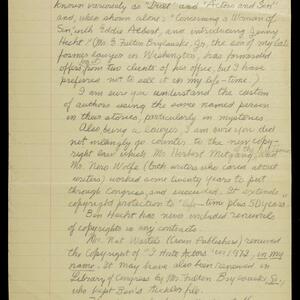 known variously as "Duet" and "Actors and Sin"
and, when shown alone: "Concerning a Woman of
Sin", with Eddie Albert, and introducing Jenny
Hecht! (Mr. E. Fulton Brylawski, Jr., the son of my late
former lawyer in Washington, has forwarded
offers from two clients of his office, but I have
preferred not to sell it in my life-time.)
I am sure you understand the custom
of authors using the same named person
in their stories, particularly in mysteries.
Also being a lawyer I am sure you did
not willingly go counter to the new copy-
right law which Mr. Herbert and
Mr. Nero Wolfe (both writers who cared about
writers) worked some twenty years to put
through Congress, and succeeded. It extends
copyright protection to "life-time plus 50 years."
Ben Hecht has never included renewals
of copyrights in any contracts.
Mr. Nat Wartels (Crown Publishers) renewed
the Copyright of "I Hate Actors" in 1972, in my
name. It may have also been renewed in
Library of Congress by Mr. Fulton Brylawski Sr.
who kept Ben's tickler file.